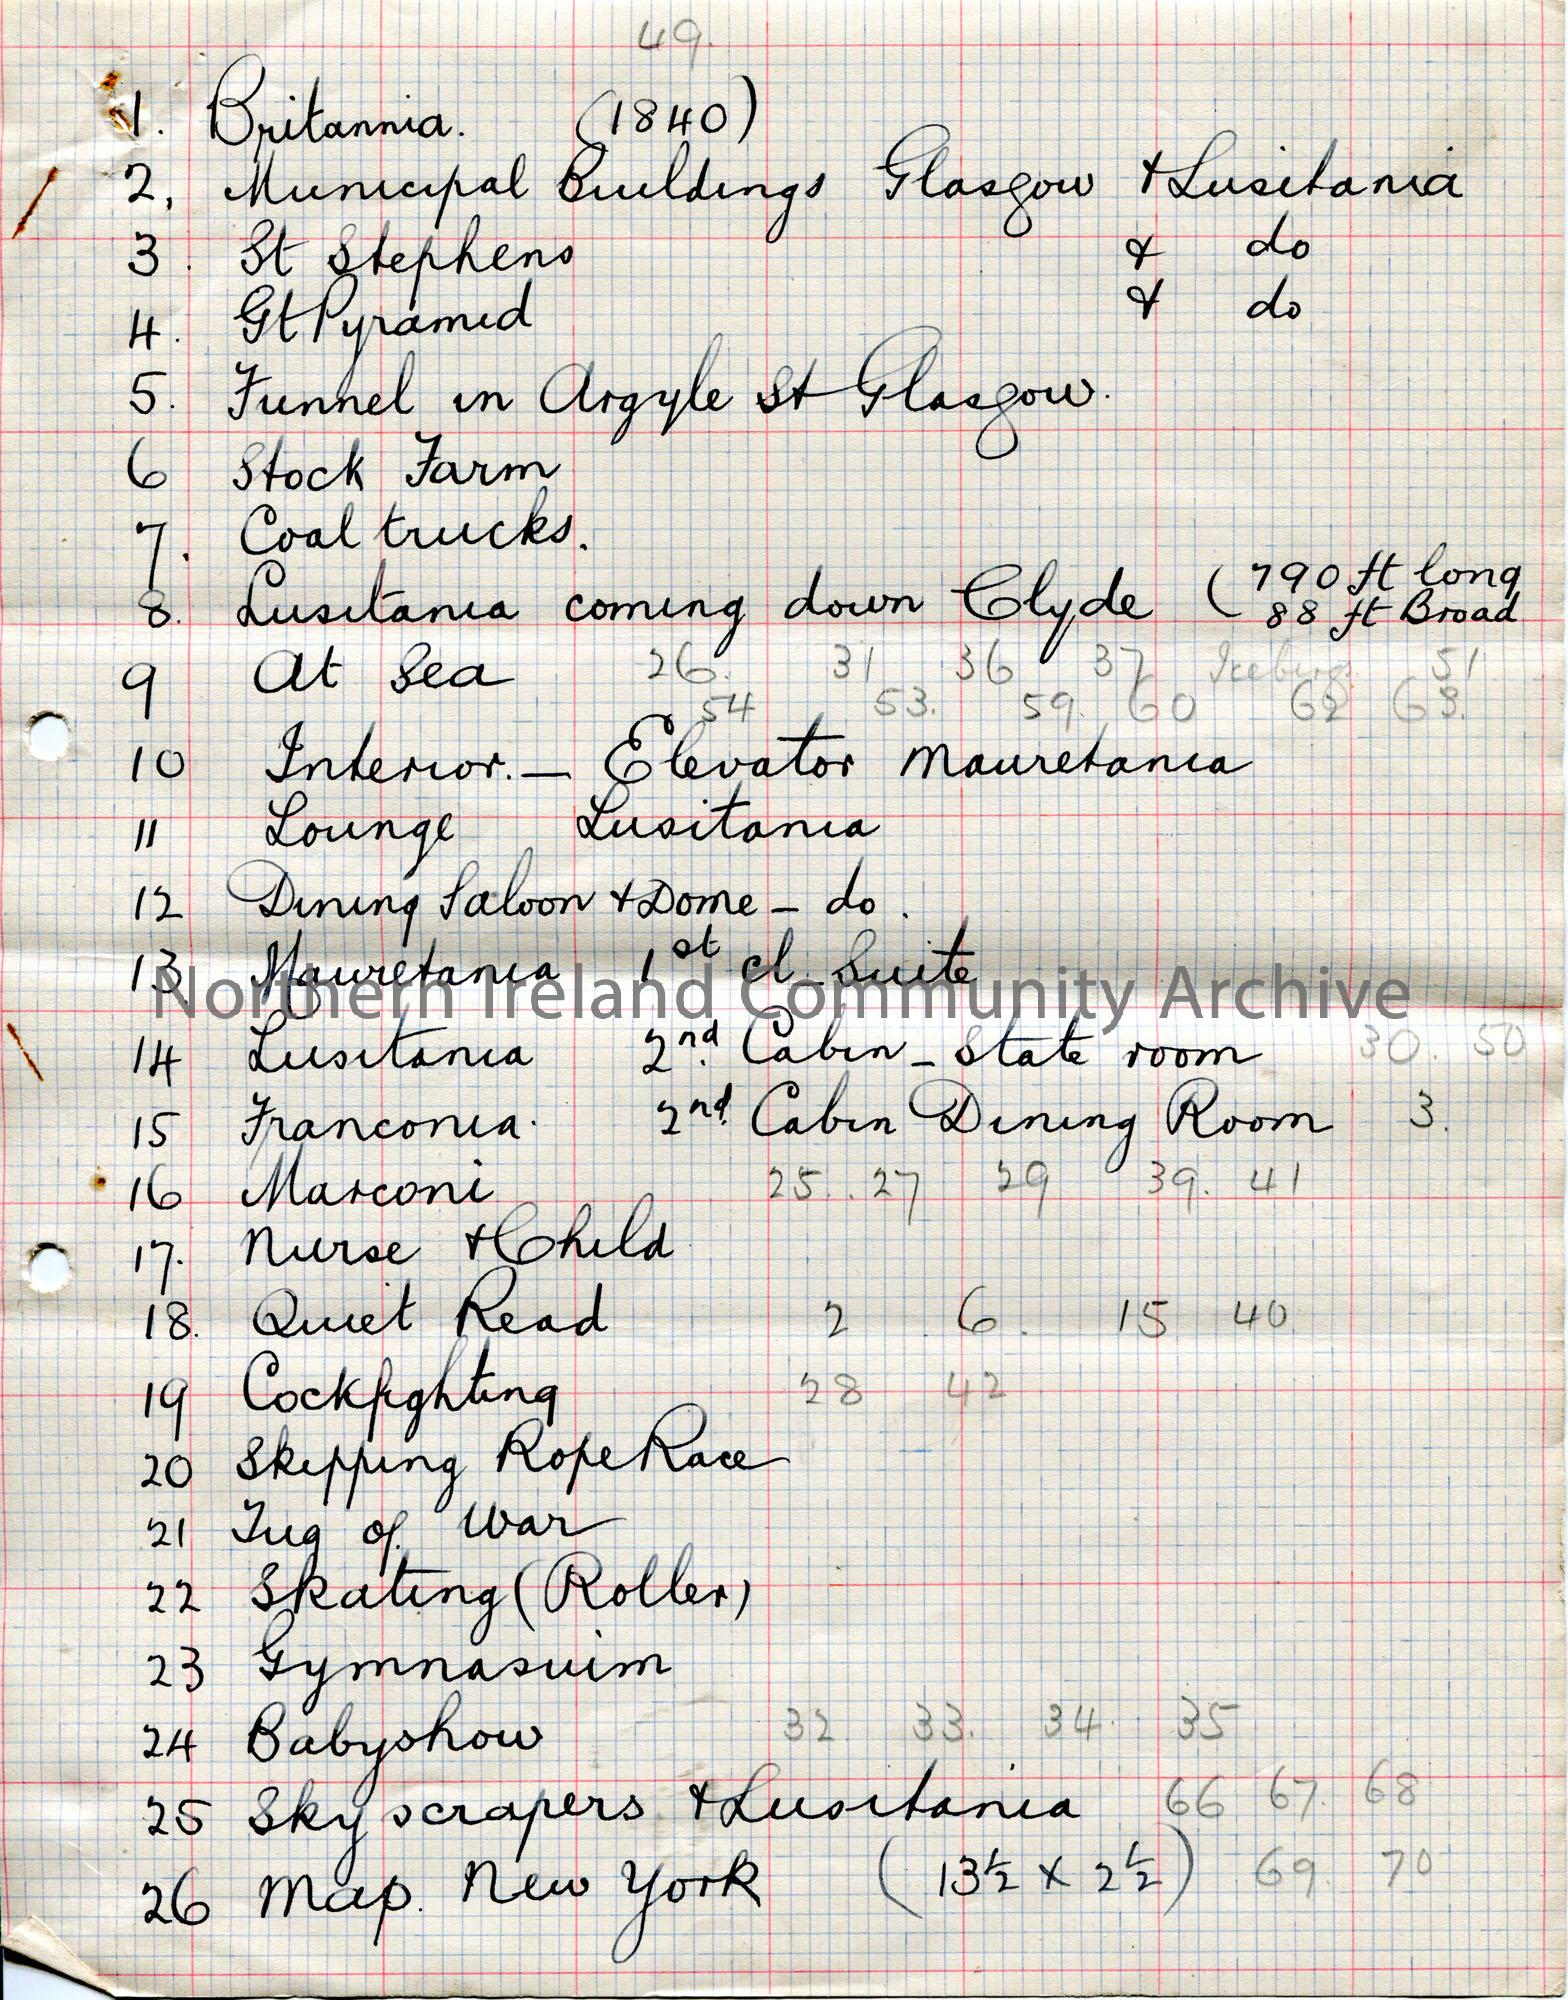 49.
1. Britannia. (1840)
2. Municipal Buildings Glasgow & Lusitania
3. St Stephens & do
4. Gt Pyramid & do
5. Funnel in Argyle St Glasgow.
6 Stock Farm
7. Coal trucks.
8. Lusitania coming down Clyde (790 ft long
88 ft Broad
9 At Sea 26. 31 36 37 Icebergs 51
54 53. 59. 60 62 63.
10 Interior. — Elevator Mauretania
11 Lounge Lusitania
12 Dining Saloon & Dome – do.
13 Mauretania 1st cl. Suite
Northern Ireland Community Archive
14 Lusitania 2nd. Cabin – State room 30. 50
15 Franconia. 2nd. Cabin Dining Room 3.
16 Marconi 25. 27 29 39. 41
17. Nurse & Child
18. Quiet Read 2 6. 15 40
19 Cockfighting 28 42
20 Skipping Rope Race
21 Tug of War
22 Skating (Roller)
23 Gymnasuim
24 Babyshow 32 33. 34. 35
25 Sky scrapers & Lusitania 66 67. 68
26 Map. New York (13½ x 2½) 69. 70